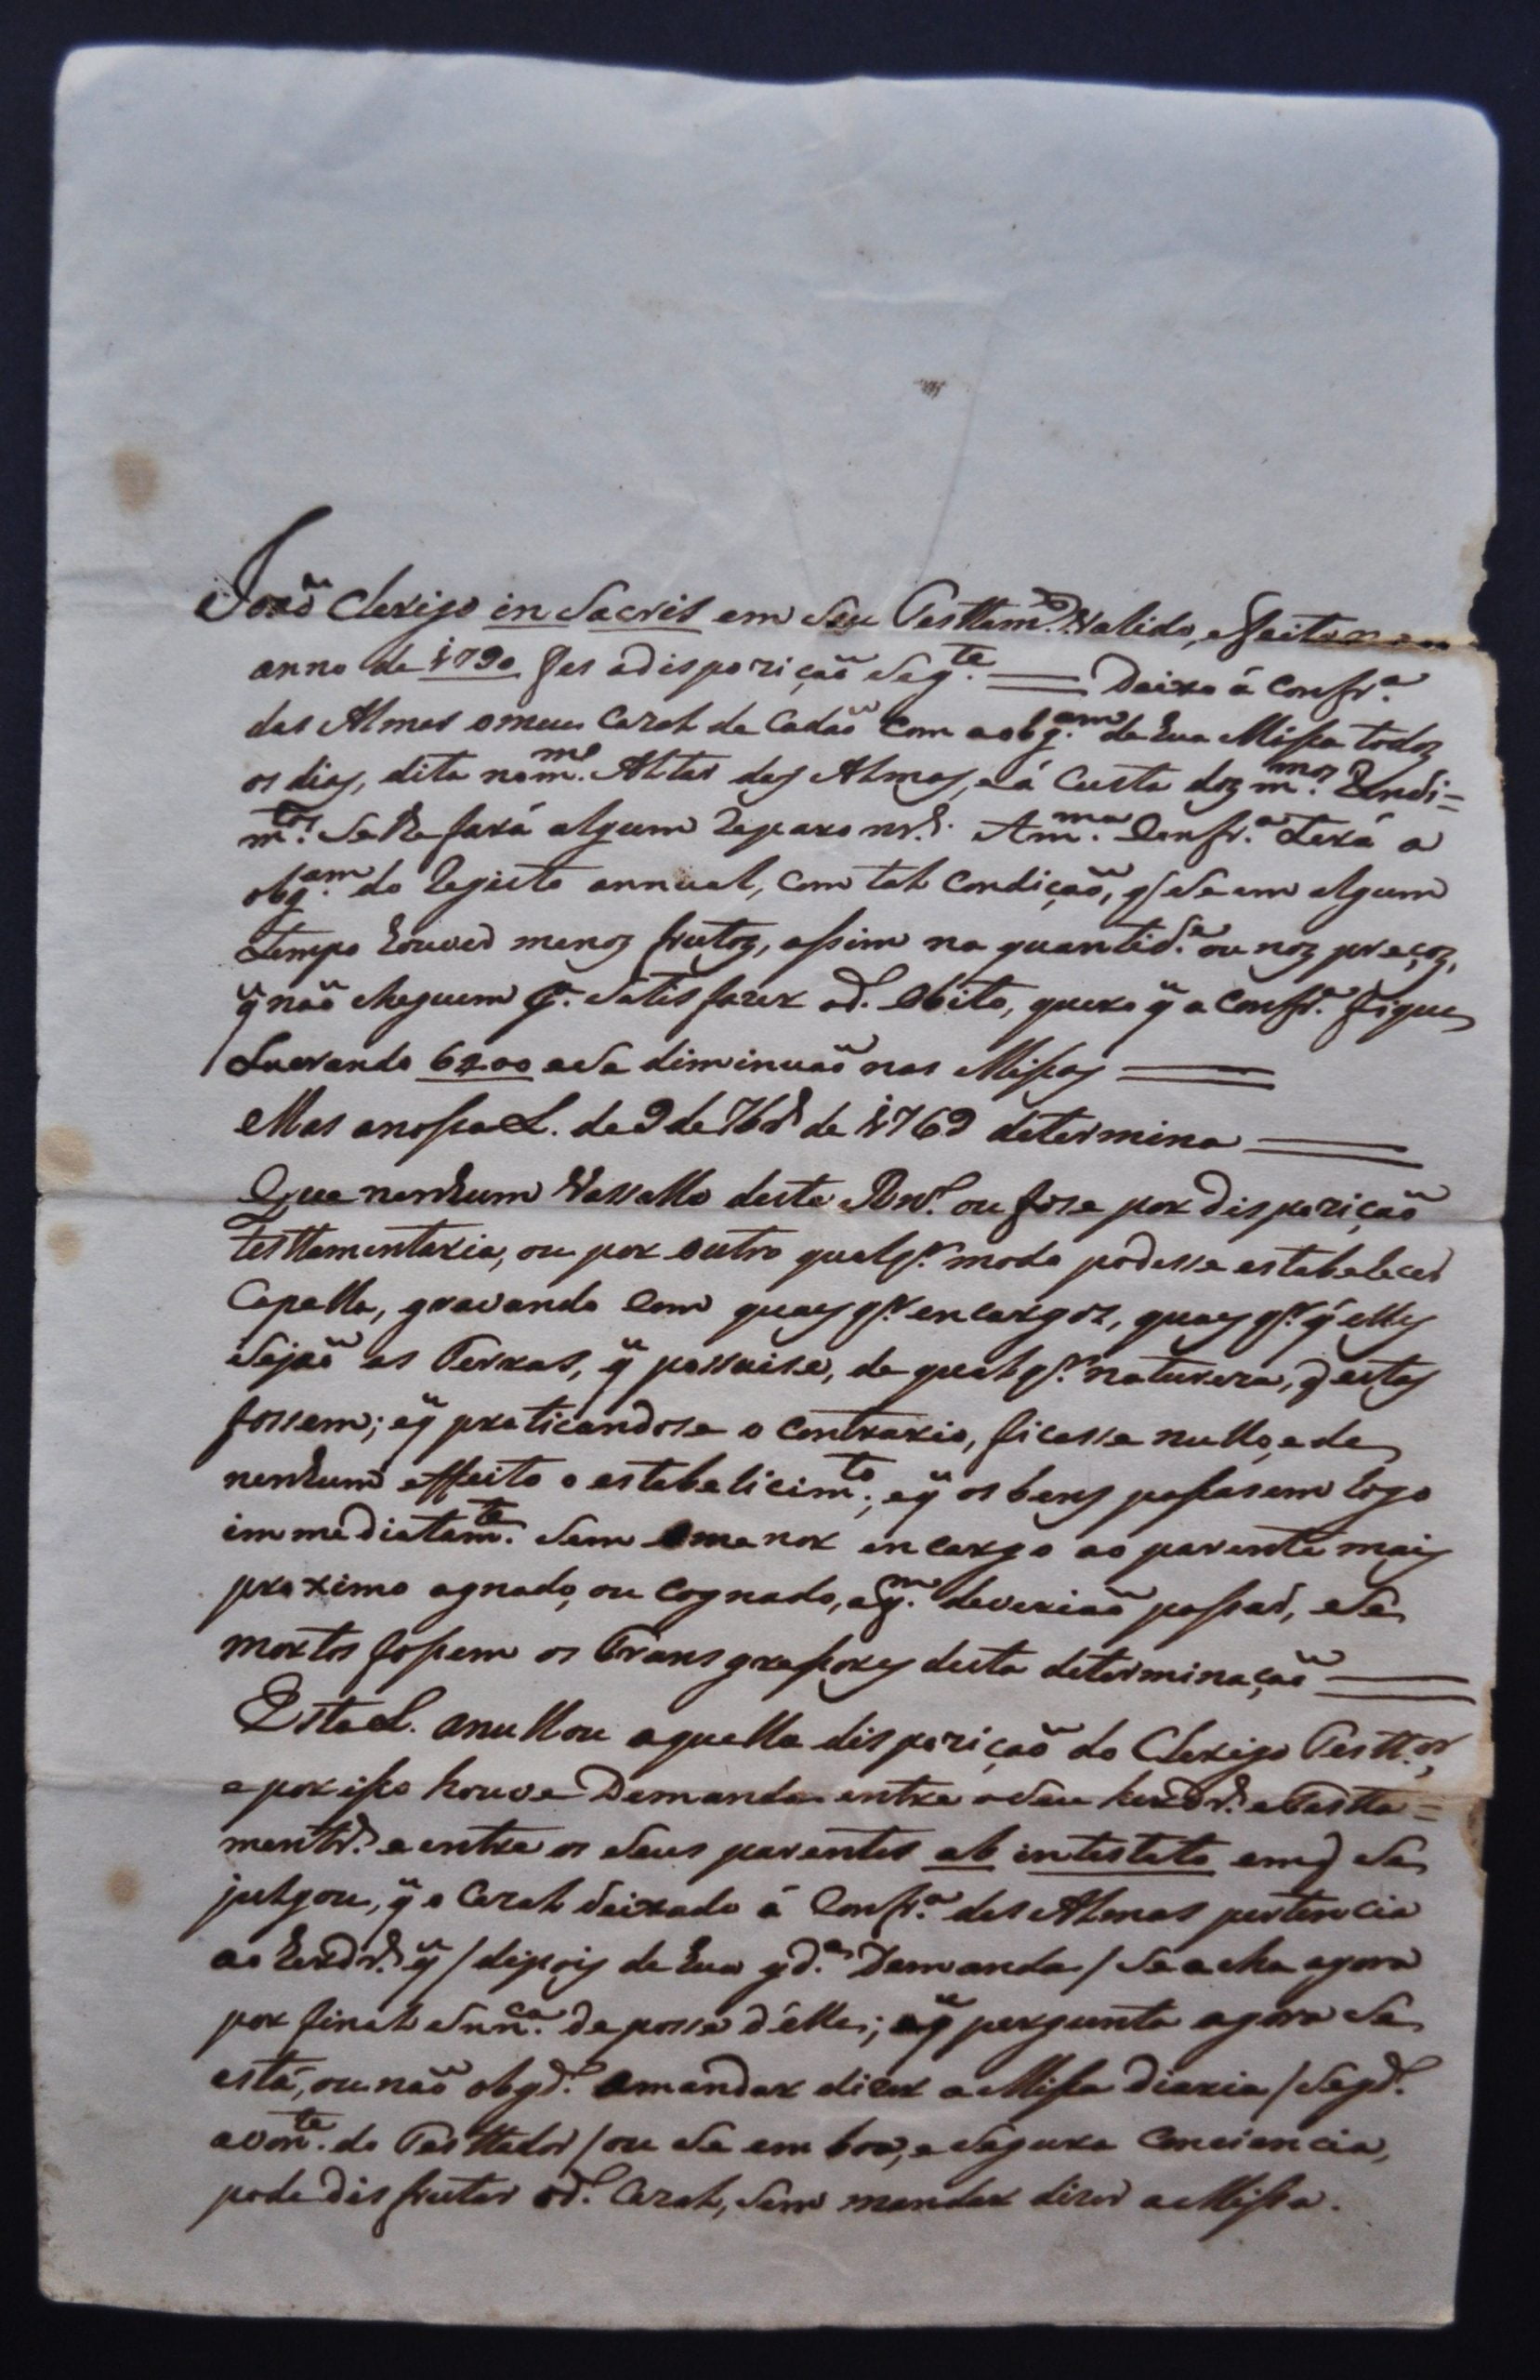 João Clerigo in Sacris em seu Testtam.to valido, e feito no
anno de 1790 fes a disposição seg.te == Deixo á Confr.a
das Almas o meu Cazal de Cadão com a obg.am de hua Missa todos
os dias, dita no m.mo Altar das Almas, e á custa dos m.mos Rendi=
m.tos se lhe fará algum reparo A m.ma Confr.a terá a
obg.am do Registo annual, com tal condição, q̃ se em algum
tempo houver menos frutos, assim na quantid.e ou nos preços,
q̃ não cheguem p.a satisfazer o d.o Obito, quero q̃ a Confr.a fique
Lucrando 6200 e se diminuão nas Missas ==
Mas a nossa L. de 9 de 7br.o de 1769 determina ==
Que nenhum Vassallo deste Rn.o ou fose por disposição
testtamentaria, ou por outro qualq.r modo podesse estabelecer
Capella, gravando com quaesq.r encargos, quaesq.r q̃ elles
sejão as Terras, q̃ possuise, de qualq.r natureza, q̃ estas
fossem; e q̃ praticandose o contrario, ficasse nullo, e de
nenhum effeito o estabelicim.to; e q̃ os bens passasem logo
immediatam.te sem o menor encargo ao parente mais
proximo agnado, ou cognado, a q.m deverião passar, se
mortos fossem os Transgressores desta determinação ==
Esta L. anullou aquella disposição do Clerigo Testt.or,
e por isso houve Demanda entre o seu herdr.o e testta=
mentr.o e entre os seus parentes ab intestato em q̃ se
julgou, q̃ o Cazal deixado á Confr.a das Almas pertencia
ao herdr.o q̃ / depois de hua gd.e Demanda / se acha agora
por final Snn.ça de posse d'elle; e q̃ pergunta agora se
está, ou não obgd.o a mandar dizer a Missa diaria / segd.o
a von.te do Testtador / ou se em boa, e segura Conciencia,
pode disfrutar o d.o Cazal, sem mandar dizer a Missa.